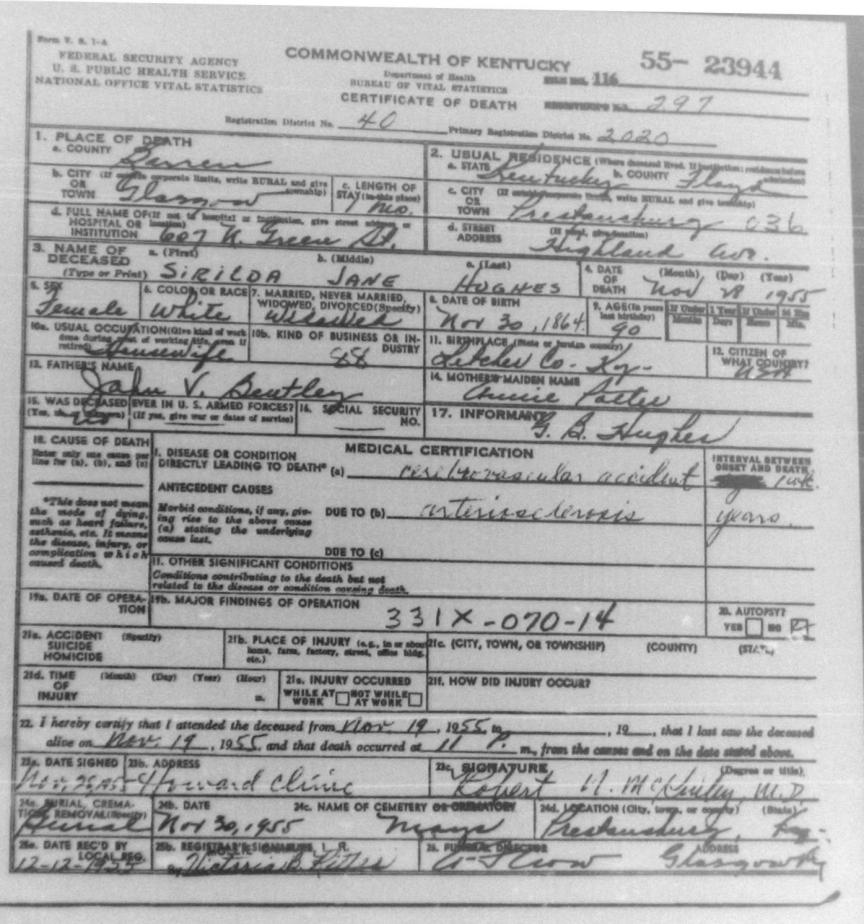 Form V. S. 1-A
FEDERAL SECURITY AGENCY
U. S. PUBLIC HEALTH SERVICE
NATIONAL OFFICE VITAL STATISTICS
COMMONWEALTH OF KENTUCKY
Department of Health
BUREAU OF VITAL STATISTICS
CERTIFICATE OF DEATH
55- 23944
FILE NO. 116
REGISTRAR'S No. 297
Registration District No. 40 Primary Registration District No. 2020
1. PLACE OF DEATH
a. COUNTY Barren
b. CITY (If outside corporate limits, write RURAL and give township) OR TOWN Glasgow
c. LENGTH OF STAY (in this place) 1 Mo.
d. FULL NAME OF (If not in hospital or institution, give street address or location) HOSPITAL OR INSTITUTION 607 N. Green St.
2. USUAL RESIDENCE (Where deceased lived. If institution: residence before admission)
a. STATE Kentucky b. COUNTY Floyd
c. CITY (If outside corporate limits, write RURAL and give township) OR TOWN Prestonsburg 036
d. STREET ADDRESS (If rural, give location) Highland Ave.
3. NAME OF DECEASED (Type or Print) a. (First) SIRILDA b. (Middle) JANE c. (Last) HUGHES
4. DATE OF DEATH (Month) (Day) (Year) Nov 28 1955
5. SEX Female
6. COLOR OR RACE White
7. MARRIED, NEVER MARRIED, WIDOWED, DIVORCED (Specify) Widowed
8. DATE OF BIRTH Nov 30, 1864
9. AGE (In years last birthday) 90
If Under 1 Year Months Days
If Under 24 Hrs Hours Min.
10a. USUAL OCCUPATION (Give kind of work done during most of working life, even if retired) Housewife
10b. KIND OF BUSINESS OR INDUSTRY 88
11. BIRTHPLACE (State or foreign country) Letcher Co. Ky-
12. CITIZEN OF WHAT COUNTRY? USA
13. FATHER'S NAME John V. Bentley
14. MOTHER'S MAIDEN NAME Annie Potter
15. WAS DECEASED EVER IN U. S. ARMED FORCES? (Yes, no, or unknown) (If yes, give war or dates of service) no
16. SOCIAL SECURITY NO.
17. INFORMANT G. B. Hughes
18. CAUSE OF DEATH
Enter only one cause per line for (a), (b), and (c)
*This does not mean the mode of dying, such as heart failure, asthenia, etc. It means the disease, injury, or complication which caused death.
MEDICAL CERTIFICATION
I. DISEASE OR CONDITION DIRECTLY LEADING TO DEATH* (a) cerebrovascular accident
INTERVAL BETWEEN ONSET AND DEATH
1 wk.
ANTECEDENT CAUSES
Morbid conditions, if any, giving rise to the above cause (a) stating the underlying cause last.
DUE TO (b) arteriosclerosis years.
DUE TO (c)
11. OTHER SIGNIFICANT CONDITIONS
Conditions contributing to the death but not related to the disease or condition causing death.
19a. DATE OF OPERATION
19b. MAJOR FINDINGS OF OPERATION
331X-070-14
20. AUTOPSY?
YES NO
21a. ACCIDENT SUICIDE HOMICIDE (Specify)
21b. PLACE OF INJURY (e.g., in or about home, farm, factory, street, office bldg. etc.)
21c. (CITY, TOWN, OR TOWNSHIP) (COUNTY) (STATE)
21d. TIME OF INJURY (Month) (Day) (Year) (Hour) m.
21e. INJURY OCCURRED WHILE AT WORK NOT WHILE AT WORK
21f. HOW DID INJURY OCCUR?
22. I hereby certify that I attended the deceased from Nov. 19, 1955, to , 19 , that I last saw the deceased
alive on Nov. 19, 1955, and that death occurred at 11 P. m., from the causes and on the date stated above.
23a. DATE SIGNED
23b. ADDRESS Howard Clinic
23c. SIGNATURE (Degree or title) Robert N. McKinley, M.D.
24a. BURIAL, CREMATION, REMOVAL (Specify) Burial
24b. DATE Nov 30, 1955
24c. NAME OF CEMETERY OR CREMATORY Mays
24d. LOCATION (City, town, or county) (State) Prestonsburg, Ky-
25a. DATE REC'D BY LOCAL REG. 12-12-1955
25b. REGISTRAR'S SIGNATURE
By Victoria B.
26. FUNERAL DIRECTOR
ADDRESS Glasgow Ky